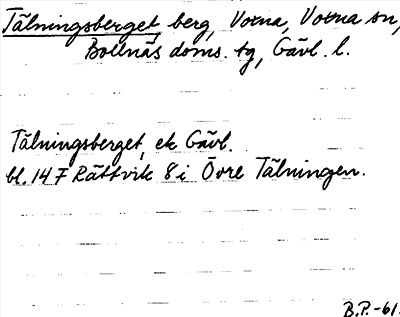 Tälningsberget, berg, Voxna, Voxna sn,
Bollnäs doms. tg, Gävl. l.
Tälningsberget, ek Gävl.
bl. 14 F Rättvik 8 i Övre Tälningen.
B.P.-61.